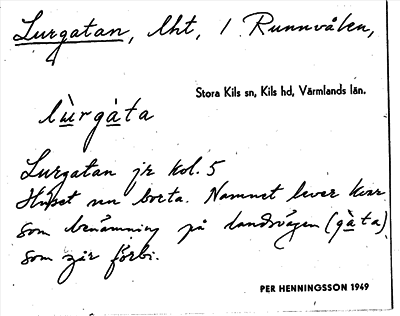 Lurgatan, lht, / Runnvålen,
Stora Kils sn, Kils hd, Värmlands län.
lùrgàta
Lurgatan jr kol. 5
Huset nu borta. Namnet lever kvar
som benämning på landsvägen (gàta)
som går förbi.
PER HENNINGSSON 1949